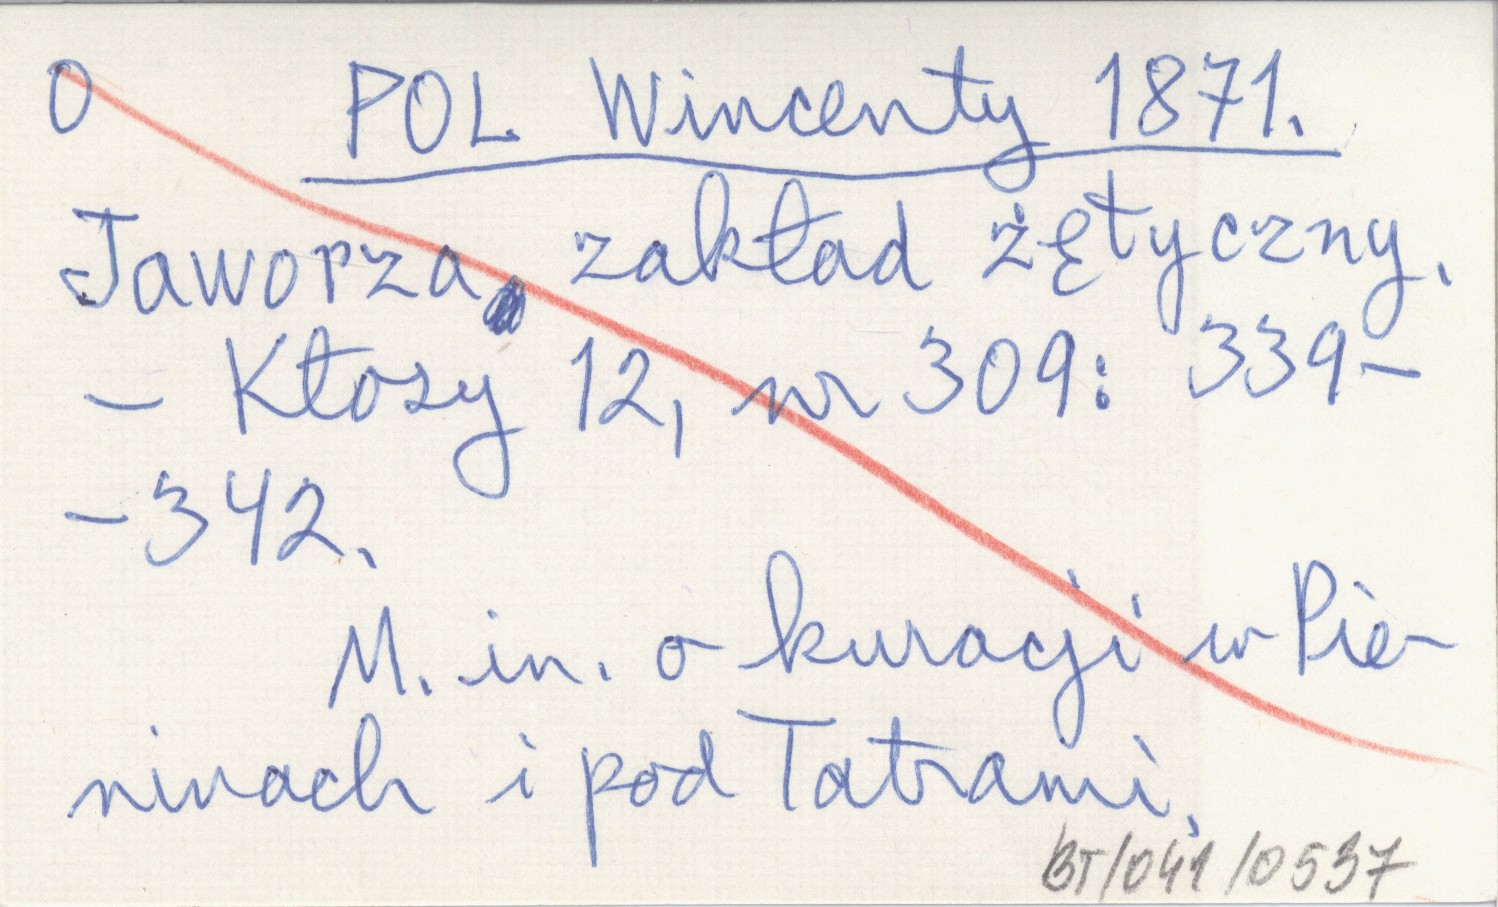 O POL Wincenty 1871.
Jaworza, zakład żętyczny.
– Kłosy 12, nr 309: 339–
–342.
M. in. o kuracji w Pie-
ninach i pod Tatrami.
BT/041/0537